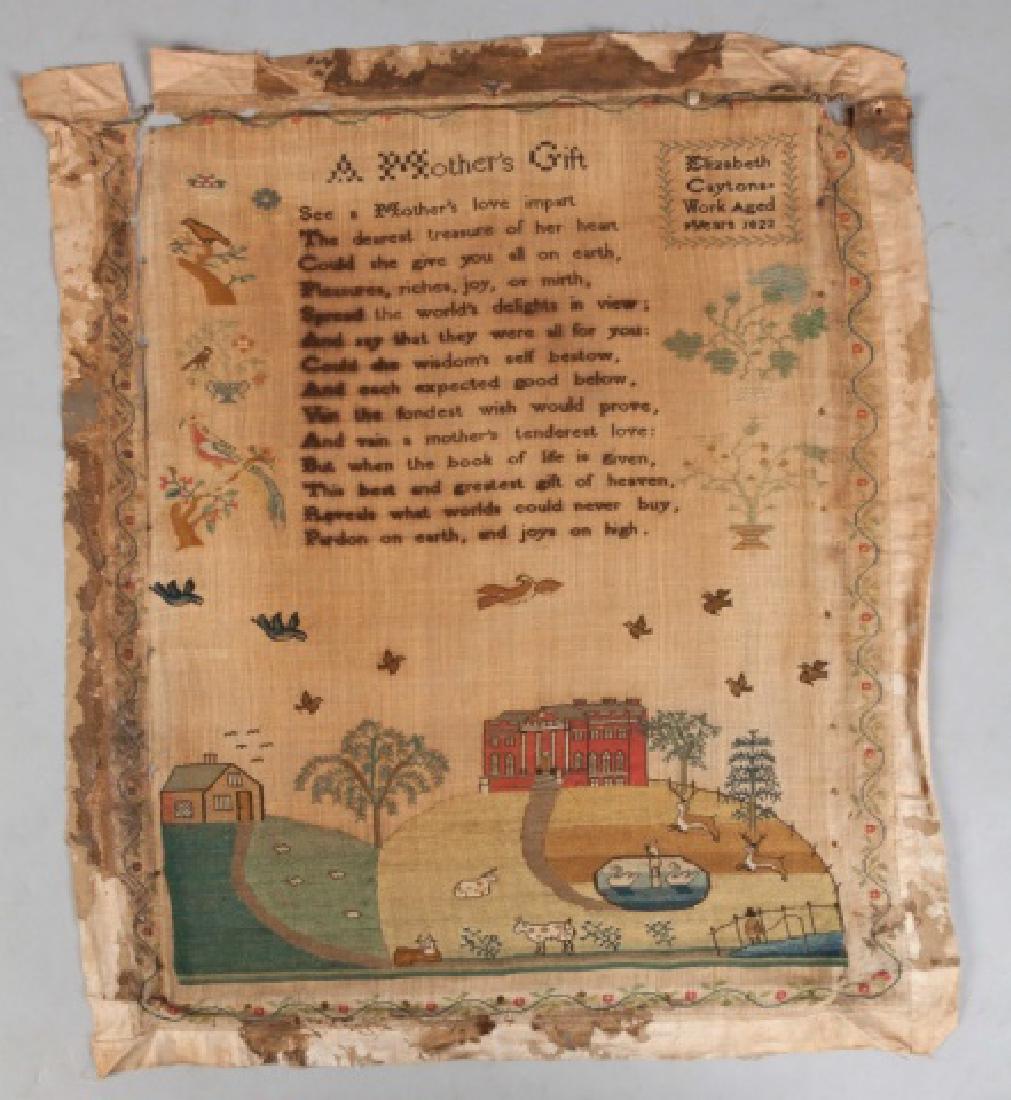 A Mother's Gift
See a Mother's love impart
The dearest treasure of her heart
Could she give you all on earth,
Pleasures, riches, joy, or mirth,
Spread the world's delights in view;
And say that they were all for you:
Could she wisdom's self bestow,
And each expected good below,
Vain the fondest wish would prove,
And vain a mother's tenderest love:
But when the book of life is given,
This best and greatest gift of heaven,
Reveals what worlds could never buy,
Pardon on earth, and joys on high.
Elizabeth
Caytons
Work Aged
Years